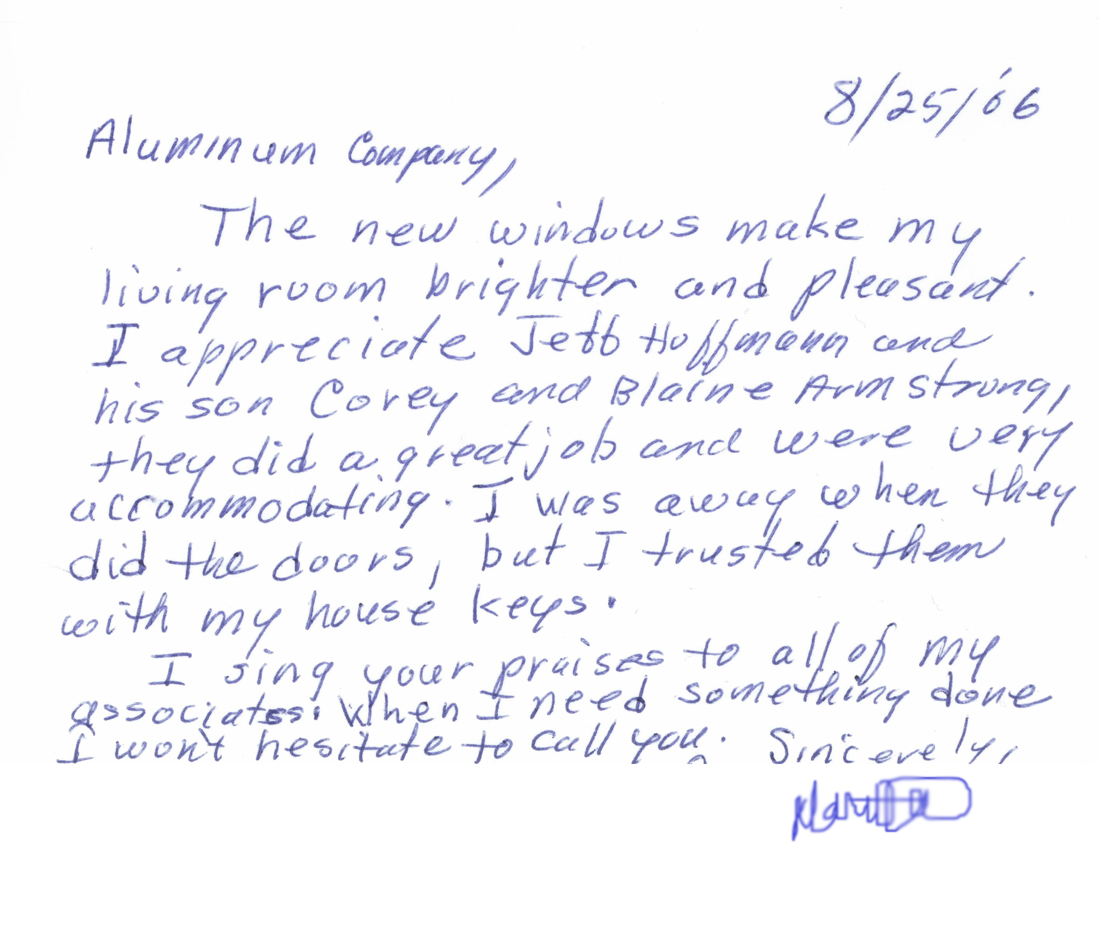 8/25/'06
Aluminum Company,
The new windows make my
living room brighter and pleasant.
I appreciate Jeff Hoffmann and
his son Corey and Blaine Armstrong,
they did a great job and were very
accommodating. I was away when they
did the doors, but I trusted them
with my house keys.
I sing your praises to all of my
associates. When I need something done
I won't hesitate to call you. Sincerely,